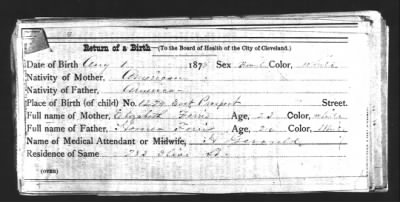 Return of a Birth—(To the Board of Health of the City of Cleveland.)
Date of Birth Aug 1 187 Sex Color, White
Nativity of Mother, American
Nativity of Father, American
Place of Birth (of child) No. 1279 East Prospect Street.
Full name of Mother, Elizabeth Ferris Age, 23 Color, White
Full name of Father, Ferris Age, 26 Color,
Name of Medical Attendant or Midwife,
Residence of Same St.
(OVER)